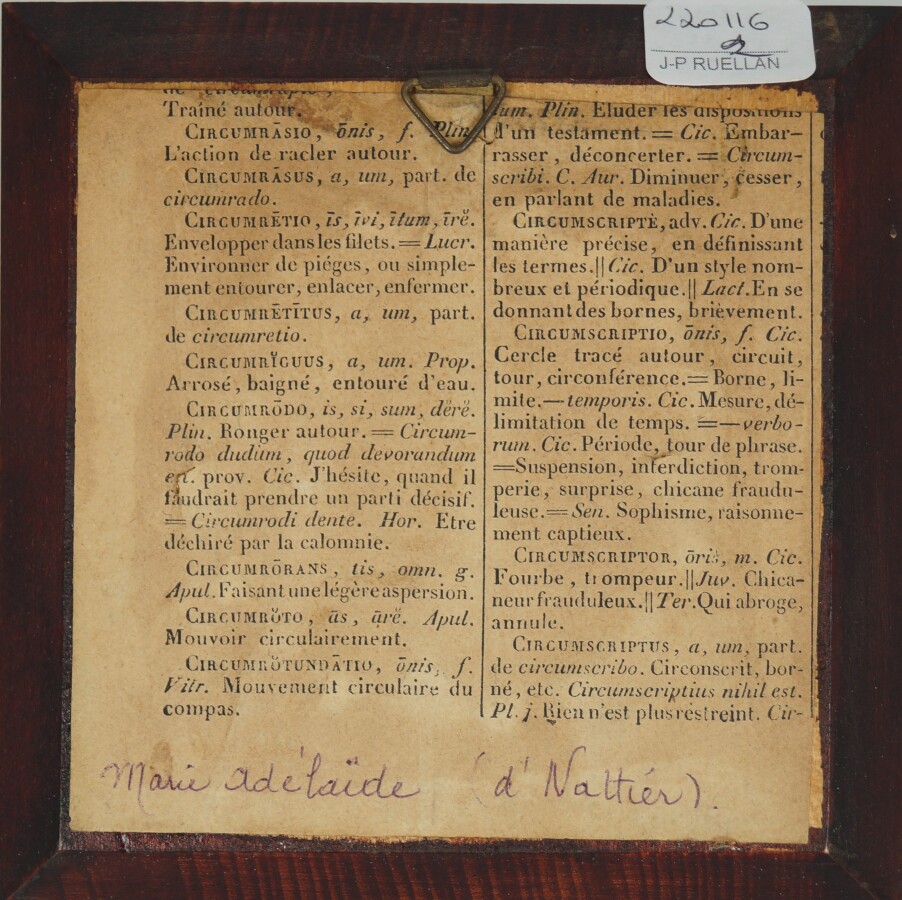 220116
2
J-P RUELLAN
de circumrapio,
Traîné autour.
CIRCUMRĀSIO, ōnis, f. Plin.
L'action de racler autour.
CIRCUMRĀSUS, a, um, part. de
circumrado.
CIRCUMRĒTIO, īs, īvi, ītum, īrĕ.
Envelopper dans les filets. = Lucr.
Environner de piéges, ou simple-
ment entourer, enlacer, enfermer.
CIRCUMRĒTĪTUS, a, um, part.
de circumretio.
CIRCUMRĬGUUS, a, um. Prop.
Arrosé, baigné, entouré d'eau.
CIRCUMRŌDO, is, si, sum, dĕrĕ.
Plin. Ronger autour. = Circum-
rodo dudum, quod devorandum
est. prov. Cic. J'hésite, quand il
faudrait prendre un parti décisif.
= Circumrodi dente. Hor. Etre
déchiré par la calomnie.
CIRCUMRŌRANS, tis, omn. g.
Apul. Faisant une légère aspersion.
CIRCUMRŎTO, ās, ārĕ. Apul.
Mouvoir circulairement.
CIRCUMRŎTUNDĀTIO, ōnis, f.
Vitr. Mouvement circulaire du
compas.
tum. Plin. Eluder les dispositions
d'un testament. = Cic. Embar-
rasser, déconcerter. = Circum-
scribi. C. Aur. Diminuer, cesser,
en parlant de maladies.
CIRCUMSCRIPTÈ, adv. Cic. D'une
manière précise, en définissant
les termes. || Cic. D'un style nom-
breux et périodique. || Lact. En se
donnant des bornes, brièvement.
CIRCUMSCRIPTIO, ōnis, f. Cic.
Cercle tracé autour, circuit,
tour, circonférence. = Borne, li-
mite. — temporis. Cic. Mesure, dé-
limitation de temps. = — verbo-
rum. Cic. Période, tour de phrase.
= Suspension, interdiction, trom-
perie, surprise, chicane fraudu-
leuse. = Sen. Sophisme, raisonne-
ment captieux.
CIRCUMSCRIPTOR, ōris, m. Cic.
Fourbe, trompeur. || Juv. Chica-
neur frauduleux. || Ter. Qui abroge,
annule.
CIRCUMSCRIPTUS, a, um, part.
de circumscribo. Circonscrit, bor-
né, etc. Circumscriptius nihil est.
Pl. j. Rien n'est plus restreint. Cir-
Marie Adélaïde (d'Nattiér).